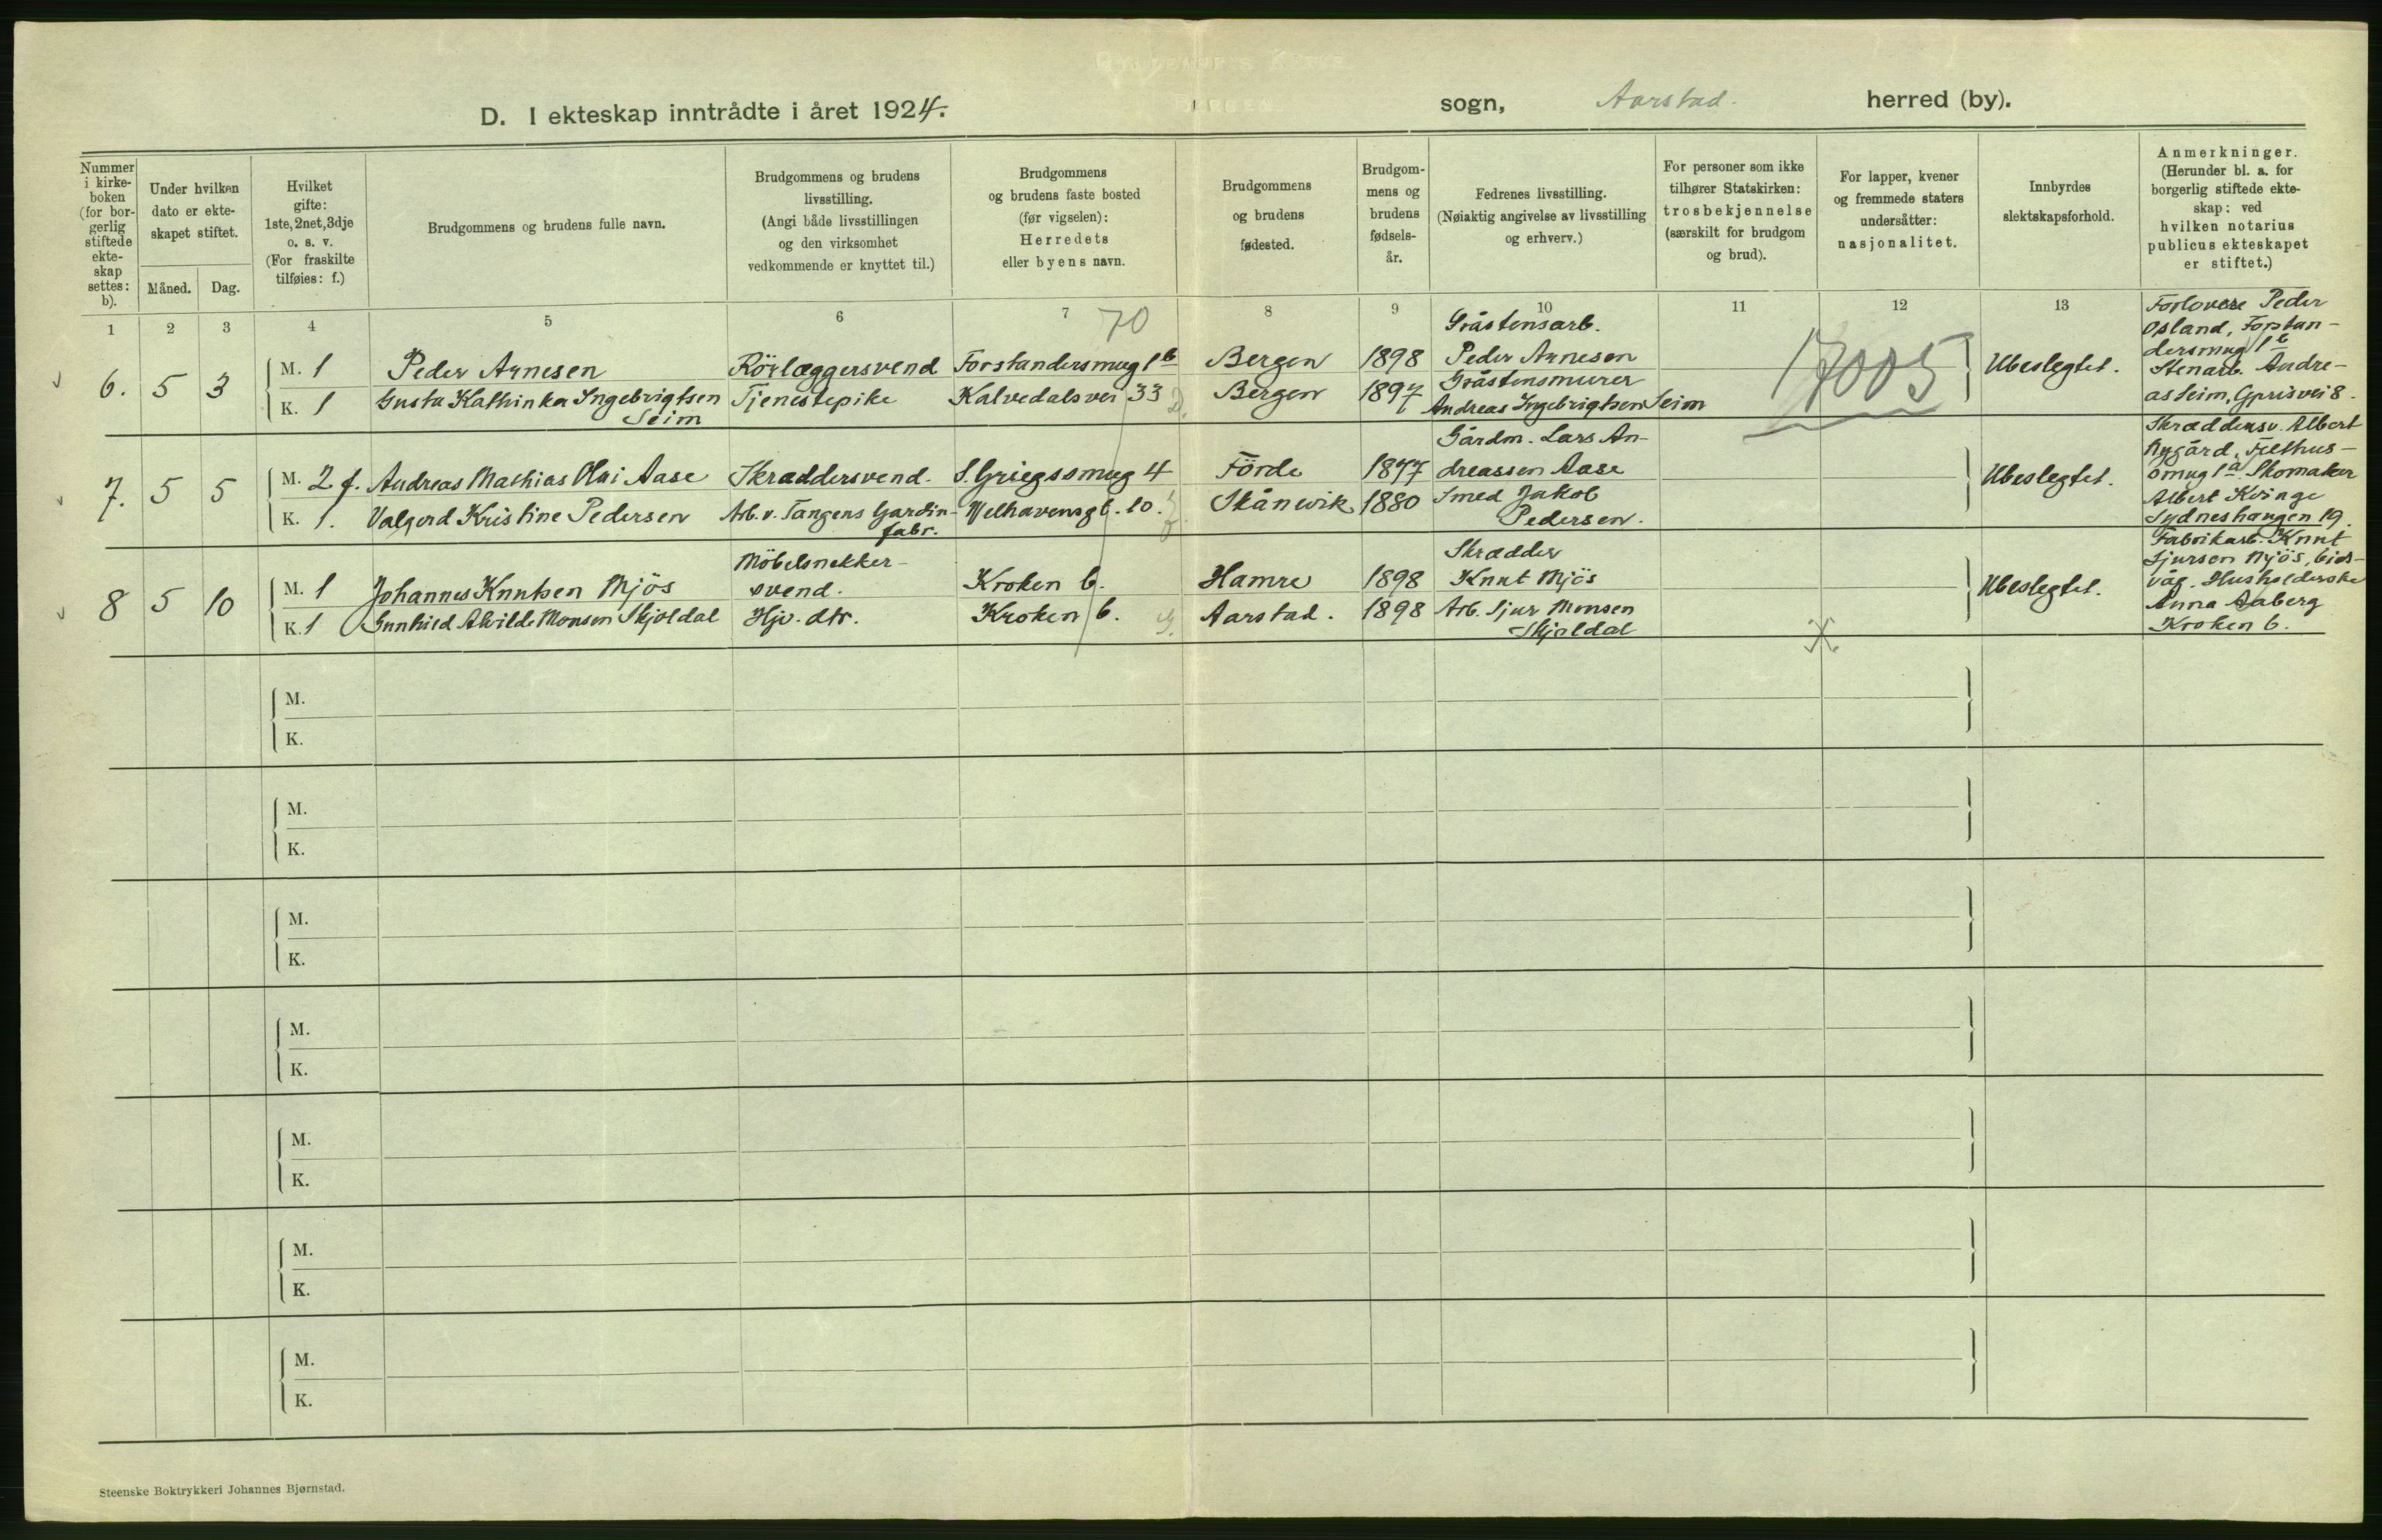 D. I ekteskap inntrådte i året 1924. sogn, Aarstad. herred (by).
Nummer i kirke-boken (for bor-gerlig stiftede ekte-skap settes: b).
Under hvilken dato er ekte-skapet stiftet.
Måned. Dag.
Hvilket gifte: 1ste, 2net, 3dje o. s. v. (For fraskilte tilføies: f.)
Brudgommens og brudens fulle navn.
Brudgommens og brudens livsstilling. (Angi både livsstillingen og den virksomhet vedkommende er knyttet til.)
Brudgommens og brudens faste bosted (før vigselen): Herredets eller byens navn.
Brudgommens og brudens fødested.
Brudgom-mens og brudens fødsels-år.
Fedrenes livsstilling. (Nøiaktig angivelse av livsstilling og erhverv.)
For personer som ikke tilhører Statskirken: trosbekjennelse (særskilt for brudgom og brud).
For lapper, kvener og fremmede staters undersåtter: nasjonalitet.
Innbyrdes slektskapsforhold.
Anmerkninger. (Herunder bl. a. for borgerlig stiftede ekte-skap: ved hvilken notarius publicus ekteskapet er stiftet.)
1 2 3 4 5 6 7 8 9 10 11 12 13
70
17005
6. 5 3
M. 1 Peder Arnesen Rörlæggersvend Forstandersmug 1b Bergen 1898 Gråstensarb. Peder Arnesen
K. 1 Gusta Kathinka Ingebrigtsen Seim Tjenestepike Kalvedalsvei 33 Bergen 1897 Gråstensmurer Andreas Ingebrigtsen Seim
Ubeslegtet.
Forlovere Peder
Osland, Forstan-
dersmug 1b
Stenarb. Andre-
as Seim, Gprisvei 8.
7. 5 5
M. 2 f. Andreas Mathias Olai Aase Skræddersvend. S. Griegssmug 4 Förde 1877 Gårdm. Lars An-dreassen Aase
K. 1. Valgerd Kristine Pedersen Arb. v. Tangens Gardin-fabr. Welhavensgt. 10. Skånevik 1880 Smed Jakob Pedersen.
Ubeslegtet.
Skræddersv. Albert
Nygård, Fjelthus-
smug 1a Skomaker
Albert Kvinge
Sydneshaugen 19.
8 5 10
M. 1 Johannes Knutsen Mjös Möbelsnekker-svend. Kroken 6. Hamre 1898 Skrædder Knut Mjös
K. 1 Gunhild Alvilde Monsen Skjoldal Hjv. dtr. Kroken 6. Aarstad. 1898 Arb. Sjur Monsen Skjoldal
Ubeslegtet.
Fabrikarb. Knut
Sjursen Mjös, Eids-
våg. Husholderske
Anna Aaberg
Kroken 6.
M.
K.
M.
K.
M.
K.
M.
K.
M.
K.
M.
K.
M.
K.
Steenske Boktrykkeri Johannes Bjørnstad.